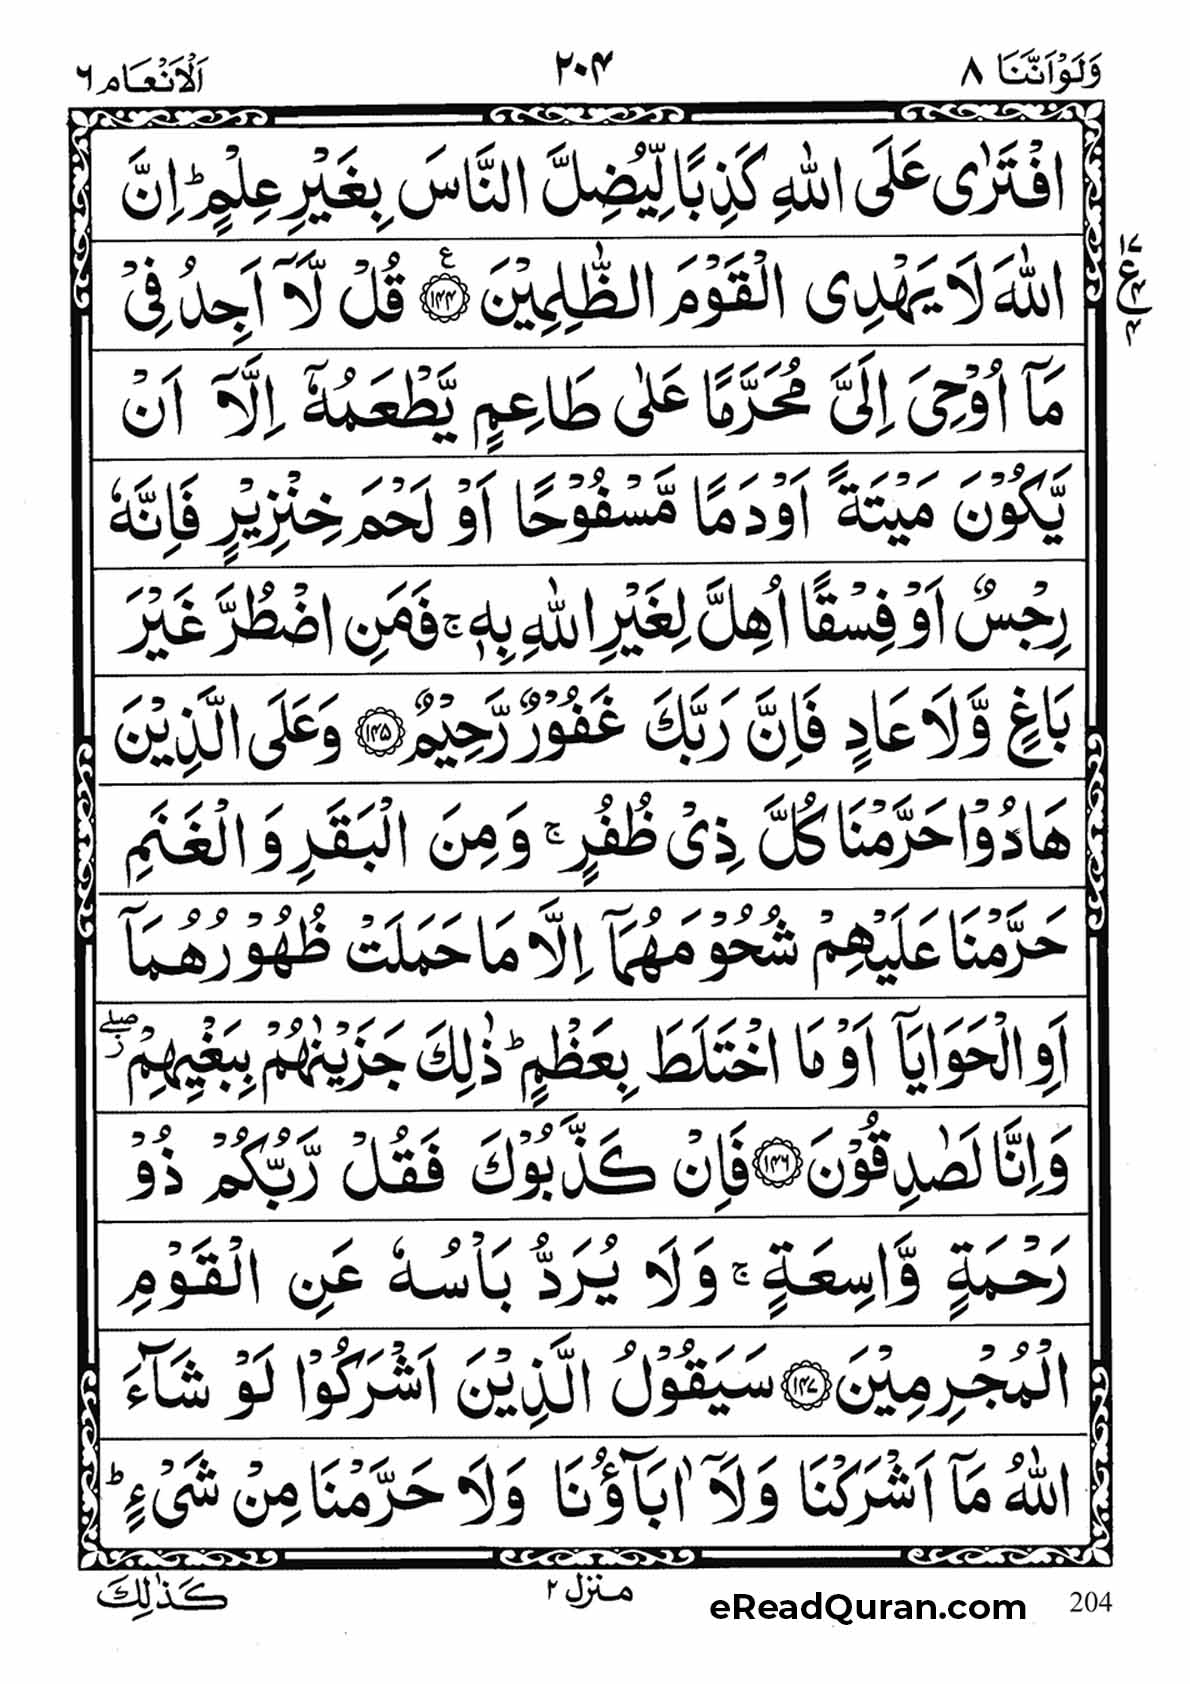 وَلَوْاَنَّنَا ٨
٢٠٤
اَلْاَنْعَام ٦
افْتَرٰى عَلَى اللّٰهِ كَذِبًا لِّيُضِلَّ النَّاسَ بِغَيْرِ عِلْمٍ ؕ اِنَّ
اللّٰهَ لَا يَهْدِى الْقَوْمَ الظّٰلِمِيْنَ ۧ ﴿١٤٤﴾ قُلْ لَّاۤ اَجِدُ فِىْ
١٧
ع
٤
٤
مَاۤ اُوْحِىَ اِلَىَّ مُحَرَّمًا عَلٰى طَاعِمٍ يَّطْعَمُهٗۤ اِلَّاۤ اَنْ
يَّكُوْنَ مَيْتَةً اَوْ دَمًا مَّسْفُوْحًا اَوْ لَحْمَ خِنْزِيْرٍ فَاِنَّهٗ
رِجْسٌ اَوْ فِسْقًا اُهِلَّ لِغَيْرِ اللّٰهِ بِهٖ ۚ فَمَنِ اضْطُرَّ غَيْرَ
بَاغٍ وَّلَا عَادٍ فَاِنَّ رَبَّكَ غَفُوْرٌ رَّحِيْمٌ ﴿١٤٥﴾ وَعَلَى الَّذِيْنَ
هَادُوْا حَرَّمْنَا كُلَّ ذِىْ ظُفُرٍ ۚ وَمِنَ الْبَقَرِ وَالْغَنَمِ
حَرَّمْنَا عَلَيْهِمْ شُحُوْمَهُمَاۤ اِلَّا مَا حَمَلَتْ ظُهُوْرُهُمَاۤ
اَوِ الْحَوَايَاۤ اَوْ مَا اخْتَلَطَ بِعَظْمٍ ؕ ذٰلِكَ جَزَيْنٰهُمْ بِبَغْيِهِمْ ۖ ز
وَاِنَّا لَصٰدِقُوْنَ ﴿١٤٦﴾ فَاِنْ كَذَّبُوْكَ فَقُلْ رَّبُّكُمْ ذُوْ
رَحْمَةٍ وَّاسِعَةٍ ۚ وَلَا يُرَدُّ بَاْسُهٗ عَنِ الْقَوْمِ
الْمُجْرِمِيْنَ ﴿١٤٧﴾ سَيَقُوْلُ الَّذِيْنَ اَشْرَكُوْا لَوْ شَآءَ
اللّٰهُ مَاۤ اَشْرَكْنَا وَلَاۤ اٰبَآؤُنَا وَلَا حَرَّمْنَا مِنْ شَىْءٍ ؕ
كَذٰلِكَ
منزل ٢
eReadQuran.com
204